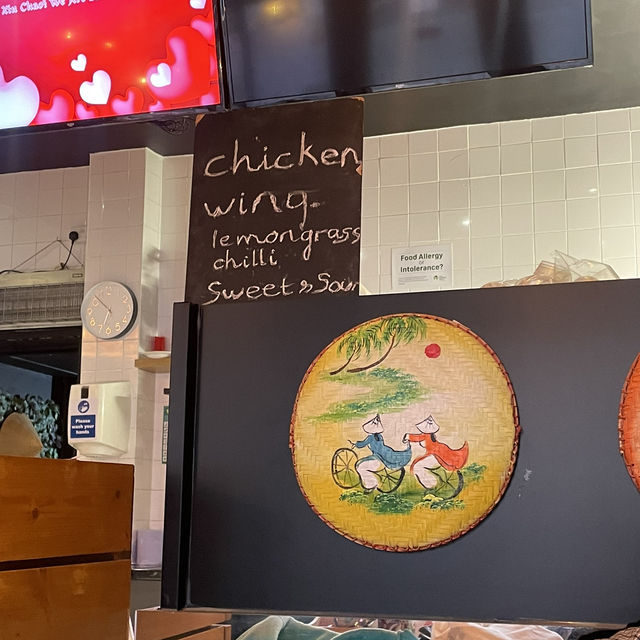 Xin Chao! We
chicken
wing.
lemongrass
chilli
Sweet & Sour
Food Allergy
or
Intolerance?
Please
wash your
hands